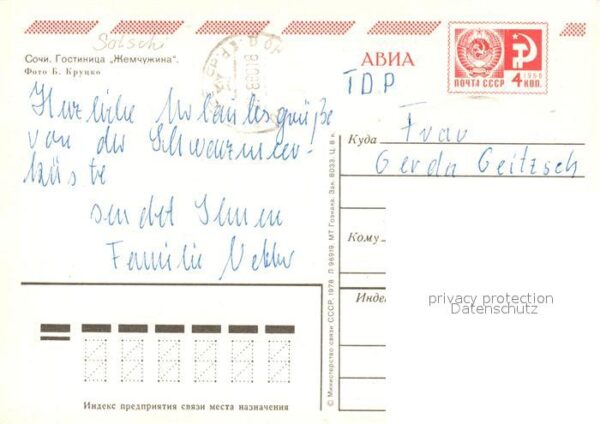 Sotschi
Сочи. Гостиница „Жемчужина".
Фото Б. Круцко
АВИА
1966
ПОЧТА СССР 4 КОП.
TDP
Herzliche Urlaubsgrüße
von der Schwarzmeer-
küste
sendet Ihnen
Familie
Куда
Frau
Gerda Geitzsch
Кому
Индекс
privacy protection
Datenschutz
© Министерство связи СССР, 1978. Л 96919. МТ Гознака. Зак. 8033. Ц. 8 к.
Индекс предприятия связи места назначения